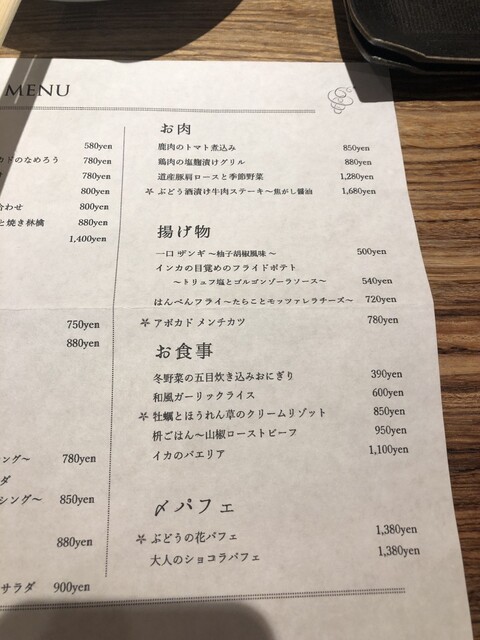 MENU
580yen
カドのなめろう 780yen
780yen
800yen
合わせ 800yen
と焼き林檎 880yen
1,400yen
750yen
880yen
シング〜 780yen
ダ
シング〜 850yen
880yen
サラダ 900yen
お肉
鹿肉のトマト煮込み 850yen
鶏肉の塩麹漬けグリル 880yen
道産豚肩ロースと季節野菜 1,280yen
☆ ぶどう酒漬け牛肉ステーキ〜焦がし醤油 1,680yen
揚げ物
一口 ザンギ 〜柚子胡椒風味〜 500yen
インカの目覚めのフライドポテト
〜トリュフ塩とゴルゴンゾーラソース〜 540yen
はんぺんフライ〜たらことモッツァレラチーズ〜 720yen
☆ アボカド メンチカツ 780yen
お食事
冬野菜の五目炊き込みおにぎり 390yen
和風ガーリックライス 600yen
☆ 牡蠣とほうれん草のクリームリゾット 850yen
枡ごはん〜山椒ローストビーフ 950yen
イカのパエリア 1,100yen
〆パフェ
☆ ぶどうの花パフェ 1,380yen
大人のショコラパフェ 1,380yen